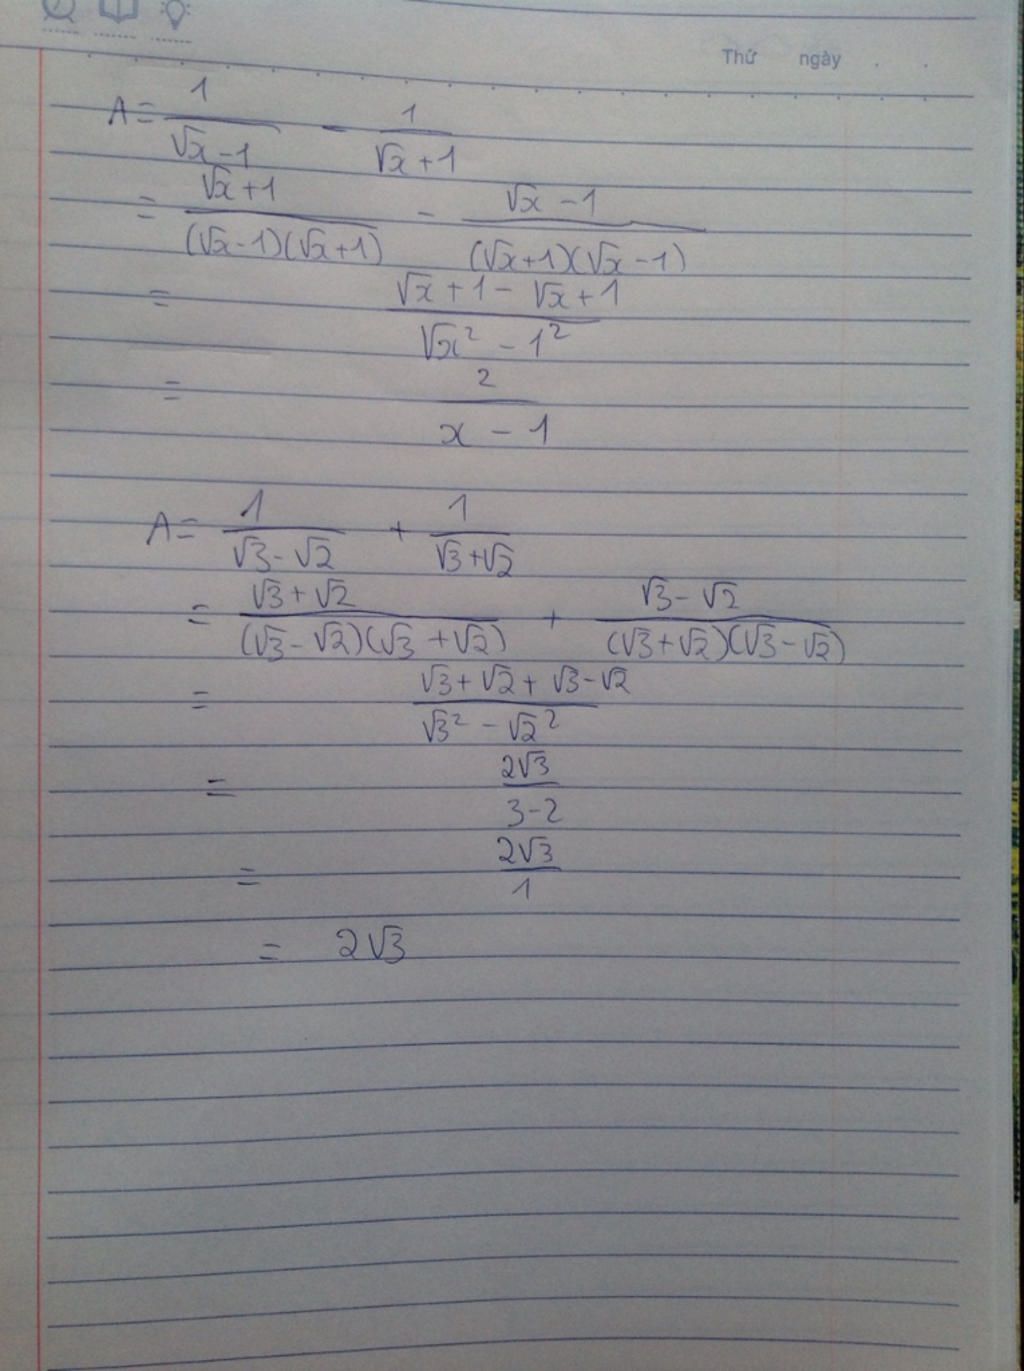 Thứ ngày . .
A = 1/(√x - 1) - 1/(√x + 1)
= (√x + 1)/((√x - 1)(√x + 1)) - (√x - 1)/((√x + 1)(√x - 1))
= (√x + 1 - √x + 1)/(√x² - 1²)
= 2/(x - 1)
A = 1/(√3 - √2) + 1/(√3 + √2)
= (√3 + √2)/((√3 - √2)(√3 + √2)) + (√3 - √2)/((√3 + √2)(√3 - √2))
= (√3 + √2 + √3 - √2)/(√3² - √2²)
= 2√3/(3 - 2)
= 2√3/1
= 2√3